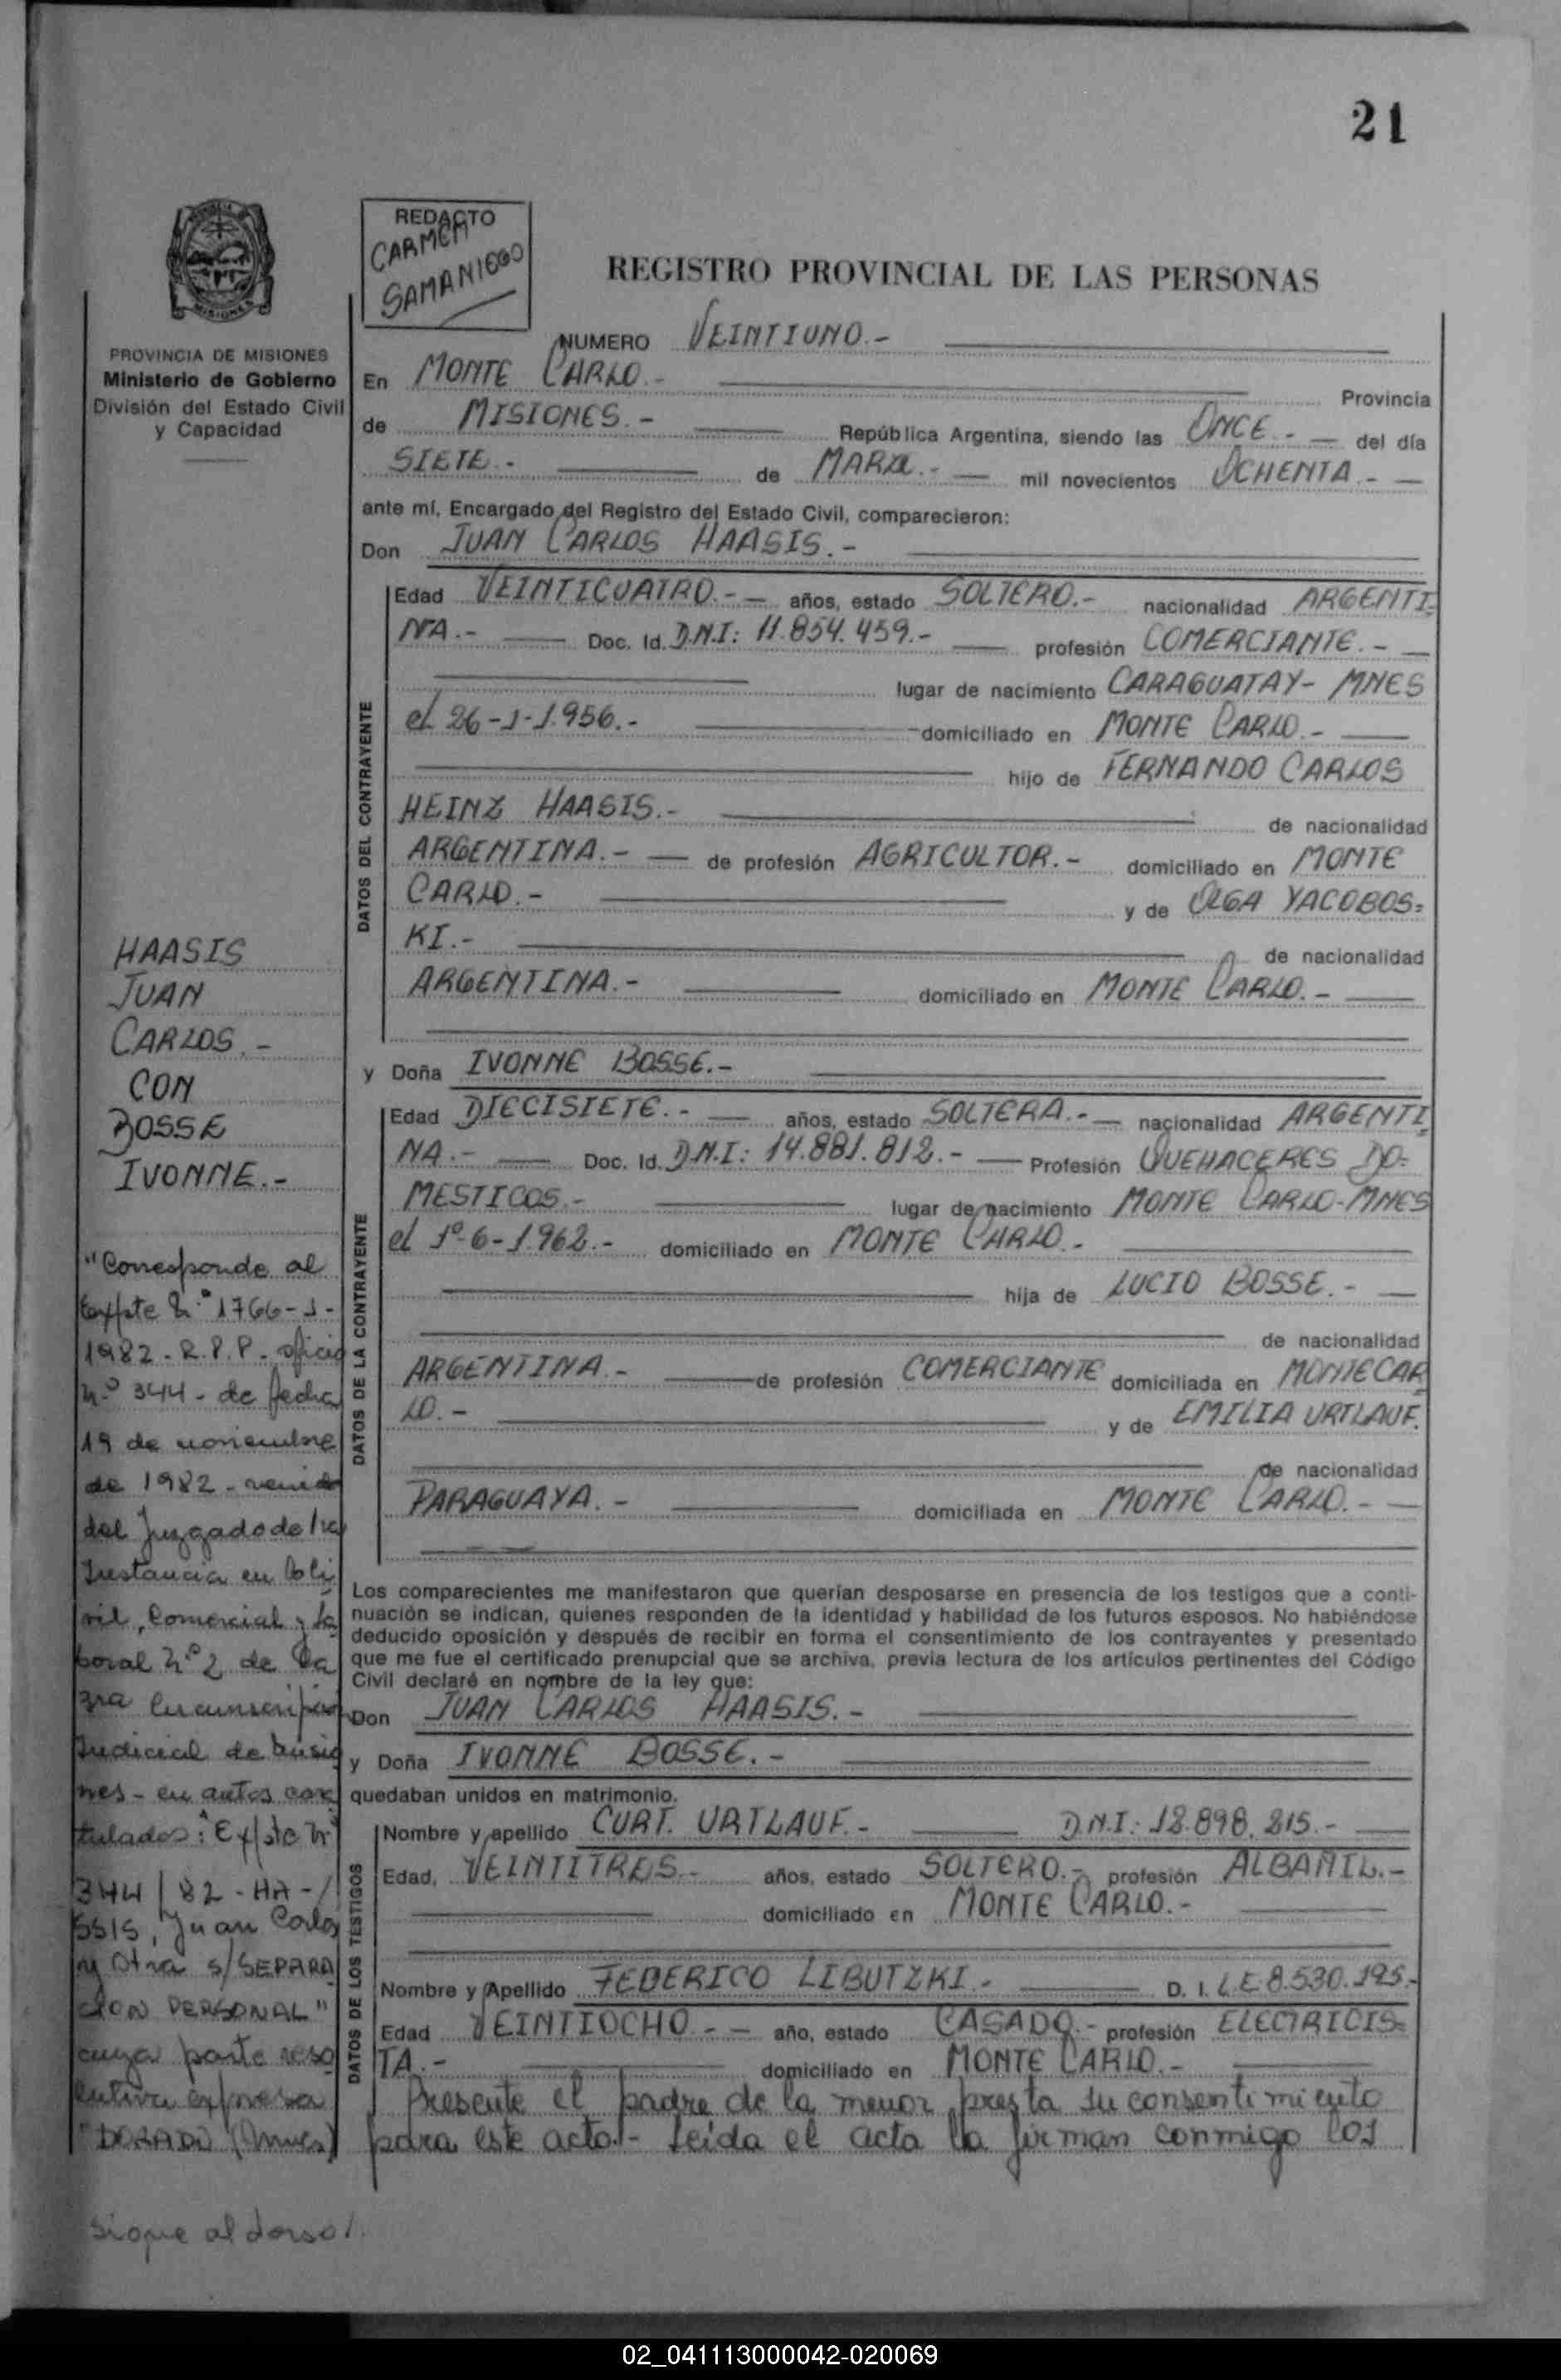 21
REDACTO
CARMEN
SAMANIEGO
REGISTRO PROVINCIAL DE LAS PERSONAS
PROVINCIA DE MISIONES
Ministerio de Gobierno
División del Estado Civil
y Capacidad
NUMERO VEINTIUNO.-
En MONTE CARLO.- Provincia
de MISIONES.- República Argentina, siendo las ONCE.- del día
SIETE.- de MARZO.- mil novecientos OCHENTA.-
ante mí, Encargado del Registro del Estado Civil, comparecieron:
Don JUAN CARLOS HAASIS.-
DATOS DEL CONTRAYENTE
Edad VEINTICUATRO.- años, estado SOLTERO.- nacionalidad ARGENTI-
NA.- Doc. Id. D.N.I: 11.854.459.- profesión COMERCIANTE.-
lugar de nacimiento CARAGUATAY- MNES
el 26-1-1.956.- domiciliado en MONTE CARLO.-
hijo de FERNANDO CARLOS
HEINZ HAASIS.- de nacionalidad
ARGENTINA.- de profesión AGRICULTOR.- domiciliado en MONTE
CARLO.- y de OLGA YACOBOS=
KI.- de nacionalidad
ARGENTINA.- domiciliado en MONTE CARLO.-
y Doña IVONNE BOSSE.-
DATOS DE LA CONTRAYENTE
Edad DIECISIETE.- años, estado SOLTERA.- nacionalidad ARGENTI
NA.- Doc. Id. D.N.I: 14.881.812.- Profesión QUEHACERES DO=
MESTICOS.- lugar de nacimiento MONTE CARLO-MNES
el 1º-6-1.962.- domiciliado en MONTE CARLO.-
hija de LUCIO BOSSE.-
de nacionalidad
ARGENTINA.- de profesión COMERCIANTE domiciliada en MONTECAR
LO.- y de EMILIA URTLAUF.
de nacionalidad
PARAGUAYA.- domiciliada en MONTE CARLO.-
Los comparecientes me manifestaron que querían desposarse en presencia de los testigos que a conti-
nuación se indican, quienes responden de la identidad y habilidad de los futuros esposos. No habiéndose
deducido oposición y después de recibir en forma el consentimiento de los contrayentes y presentado
que me fue el certificado prenupcial que se archiva, previa lectura de los artículos pertinentes del Código
Civil declaré en nombre de la ley que:
Don JUAN CARLOS HAASIS.-
y Doña IVONNE BOSSE.-
quedaban unidos en matrimonio.
DATOS DE LOS TESTIGOS
Nombre y apellido CURT. URTLAUF.- D.N.I: 12.898.215.-
Edad, VEINTITRES.- años, estado SOLTERO.- profesión ALBAÑIL.-
domiciliado en MONTE CARLO.-
Nombre y Apellido FEDERICO LIBUTZKI.- D. I. L.E 8.530.195.-
Edad VEINTIOCHO.- año, estado CASADO.- profesión ELECTRICIS=
TA.- domiciliado en MONTE CARLO.-
Presente el padre de la menor presta su consentimiento
para este acto.- Leida el acta la firman conmigo los
HAASIS
JUAN
CARLOS.-
CON
BOSSE
IVONNE.-
"Corresponde al
Expte N.º 1766-J-
1982-R.P.P.- oficio
Nº 344- de fecha
19 de noviembre
de 1982- venido
del Juzgado de 1ra
Instancia en lo Ci
vil, Comercial y la
boral Nº 2 de la
3ra Circunscripción
Judicial de Misio
nes- en autos cara
tulados: "Expte Nº
344/82-HA-/
SSIS, Juan Carlos
y Otra s/SEPARA
CION PERSONAL"
cuya parte reso
lutiva expresa
"DORADO (Mnes)
Sigue al dorso/.
02_041113000042-020069